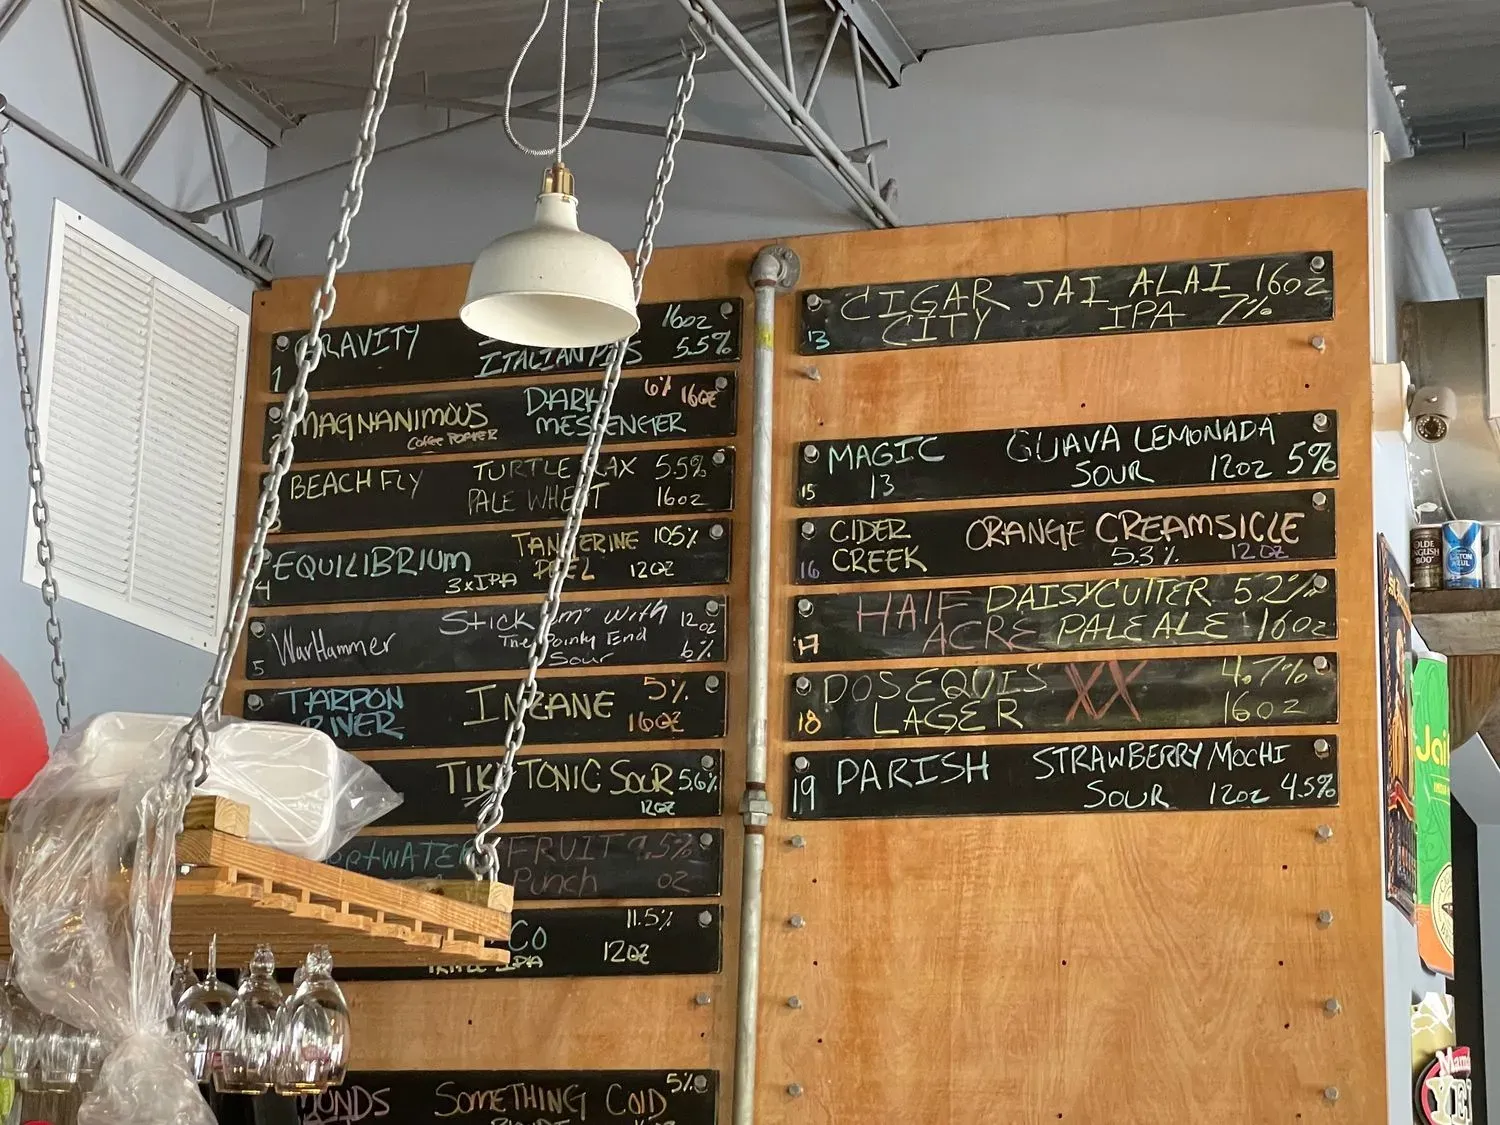 GRAVITY 16oz
ITALIAN PILS 5.5%
1
MAGNANIMOUS DARK 6% 16oz
Coffee PORTER MESSENGER
BEACH FLY TURTLE WAX 5.5%
PALE WHEAT 16oz
3
EQUILIBRIUM TANGERINE 10.5%
4 3xIPA PEEL 12oz
WarHammer Stick 'em" with 12oz
The Pointy End
5 Sour 6%
TARPON INZANE 5%
RIVER 16oz
TIKI TONIC SOUR 5.6%
12oz
FRUIT 9.5%
Punch oz
CO 11.5%
12oz
IPA
SOMETHING COLD 5%
CIGAR JAI ALAI 16oz
CITY IPA 7%
13
MAGIC GUAVA LEMONADA
15 13 SOUR 12oz 5%
CIDER ORANGE CREAMSICLE
16 CREEK 5.3% 12oz
HALF DAISYCUTTER 5.2%
17 ACRE PALE ALE 16oz
DOS EQUIS XX 4.7%
18 LAGER 16oz
PARISH STRAWBERRY MOCHI
19 SOUR 12oz 4.5%
OLDE
ENGLISH
"800"
Jai
YE